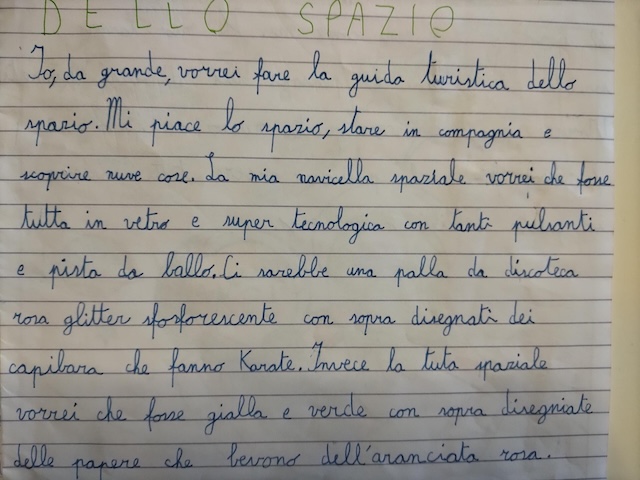 DELLO SPAZIO
Io, da grande, vorrei fare la guida turistica dello
spazio. Mi piace lo spazio, stare in compagnia e
scoprire nuve cose. La mia navicella spaziale vorrei che fosse
tutta in vetro e super tecnologica con tanti pulsanti
e pista da ballo. Ci sarebbe una palla da discoteca
rosa glitter sfosforescente con sopra disegnati dei
capibara che fanno Karate. Invece la tuta spaziale
vorrei che fosse gialla e verde con sopra disegniate
delle papere che bevono dell'aranciata rosa.